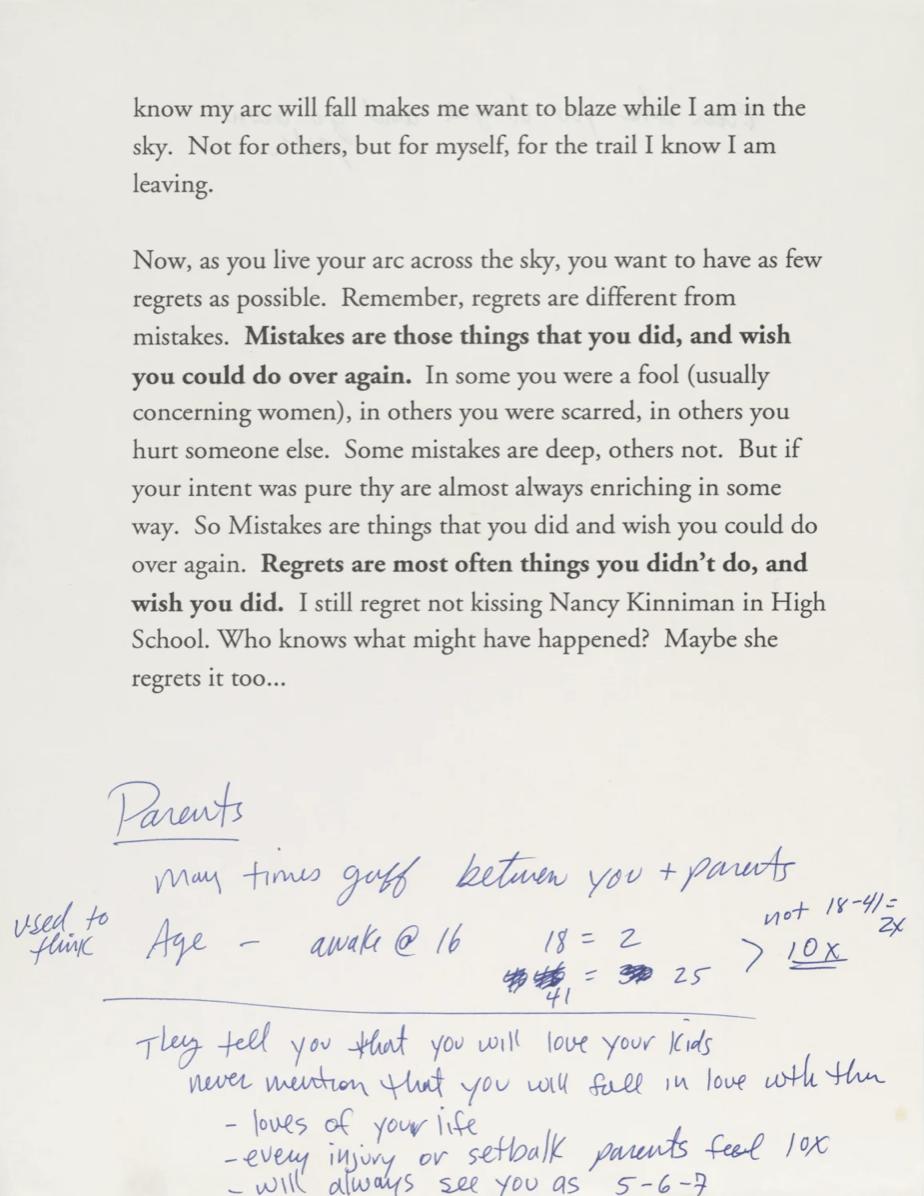 know my arc will fall makes me want to blaze while I am in the
sky. Not for others, but for myself, for the trail I know I am
leaving.
Now, as you live your arc across the sky, you want to have as few
regrets as possible. Remember, regrets are different from
mistakes. Mistakes are those things that you did, and wish
you could do over again. In some you were a fool (usually
concerning women), in others you were scarred, in others you
hurt someone else. Some mistakes are deep, others not. But if
your intent was pure thy are almost always enriching in some
way. So Mistakes are things that you did and wish you could do
over again. Regrets are most often things you didn't do, and
wish you did. I still regret not kissing Nancy Kinniman in High
School. Who knows what might have happened? Maybe she
regrets it too...
Parents
May times gulf between you + parents
used to
think
Age - awake @ 16 18 = 2
41 = 25
> 10x
not 18-41 =
2x
They tell you that you will love your kids
never mention that you will fall in love wth thm
- loves of your life
- every injury or setbalk parents feel 10x
- will always see you as 5-6-7